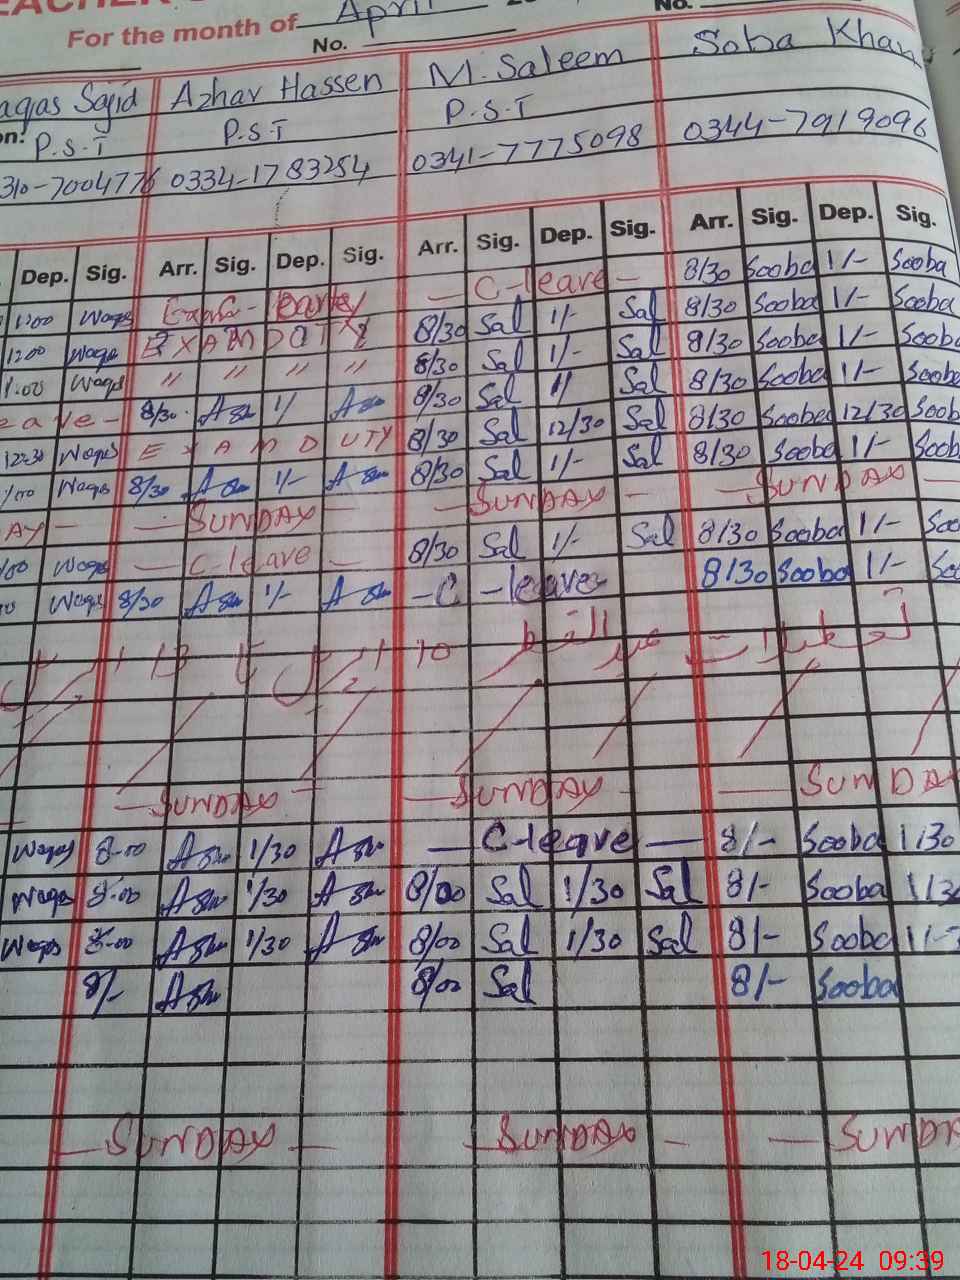 For the month of April
No.
No.
Sajid Azhar Hassen M. Saleem Soba Khan
P.S.T P.S.T P.S.T
310-7004776 0334-1783254 0341-7775098 0344-7919096
Dep. Sig. Arr. Sig. Dep. Sig. Arr. Sig. Dep. Sig. Arr. Sig. Dep. Sig.
— C-leave — 8/30 Sooba 1/- Sooba
1:00 Waqas 8/30 Sal 1/- Sal 8/30 Sooba 1/- Sooba
12:00 Waqas EXAM DUTY 8/30 Sal 1/- Sal 8/30 Sooba 1/- Sooba
1:00 Waqas " " " " 8/30 Sal 1/ Sal 8/30 Sooba 1/- Sooba
eave - 8/30 1/ 8/30 Sal 12/30 Sal 8/30 Sooba 12/30 Soob
12:30 Waqas EXAM DUTY 8/30 Sal 1/- Sal 8/30 Sooba 1/- Soob
1/00 Waqas 8/30 1/- — SUNDAY — — SUNDAY —
AY — — SUNDAY — 8/30 Sal 1/- Sal 8/30 Sooba 1/- Soo
/00 Waqas — C-leave — — C-leave 8/30 Sooba 1/- Soo
Waqas 8/30 1/-
تعطیلات عید الفطر 10 اپریل تا 13 اپریل
— SUNDAY — — SUNDAY — — SUNDA
Waqas 8:00 1/30 — C-leave — 8/- Sooba 1130
Waqas 8:00 1/30 8/00 Sal 1/30 Sal 8/- Sooba 113
Waqas 8:00 1/30 8/00 Sal 1/30 Sal 8/- Sooba
8/- 8/00 Sal 8/- Sooba
— SUNDAY — — SUNDAY — — SUNDA
18-04-24 09:39